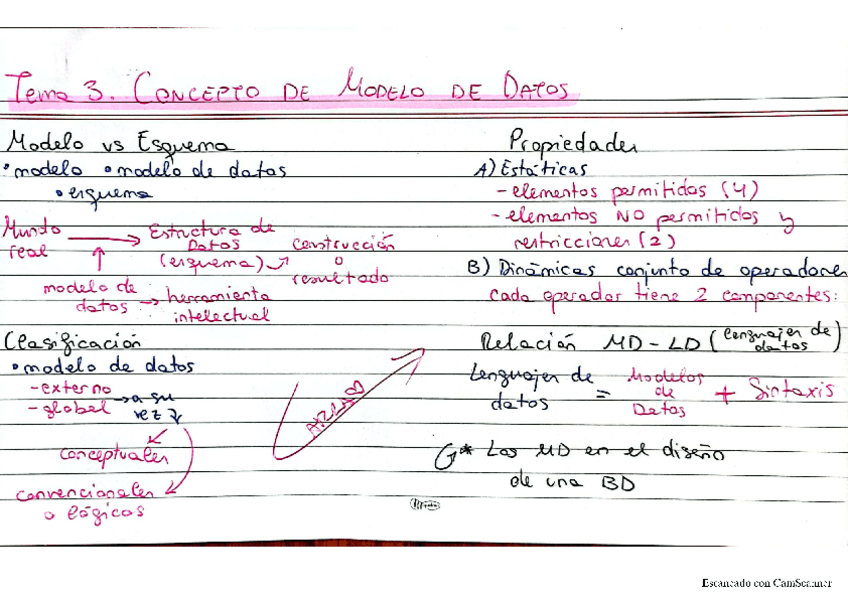 Tema 3. CONCEPTO DE MODELO DE DATOS
Modelo vs Esquema
• modelo • modelo de datos
• esquema
Mundo real → Estructura de Datos (esquema) → construcción o resultado
↑
modelo de datos → herramienta intelectual
Clasificación
• modelo de datos
- externo
- global → a su vez
conceptuales
convencionales
o lógicos
Propiedades
A) Estáticas
- elementos permitidos (4)
- elementos NO permitidos y
restricciones (2)
B) Dinámicas conjunto de operadores
Cada operador tiene 2 componentes:
Relación MD-LD (lenguajes de datos)
Lenguajes de datos = Modelos de Datos + Sintaxis
* Los MD en el diseño
de una BD
Escaneado con CamScanner